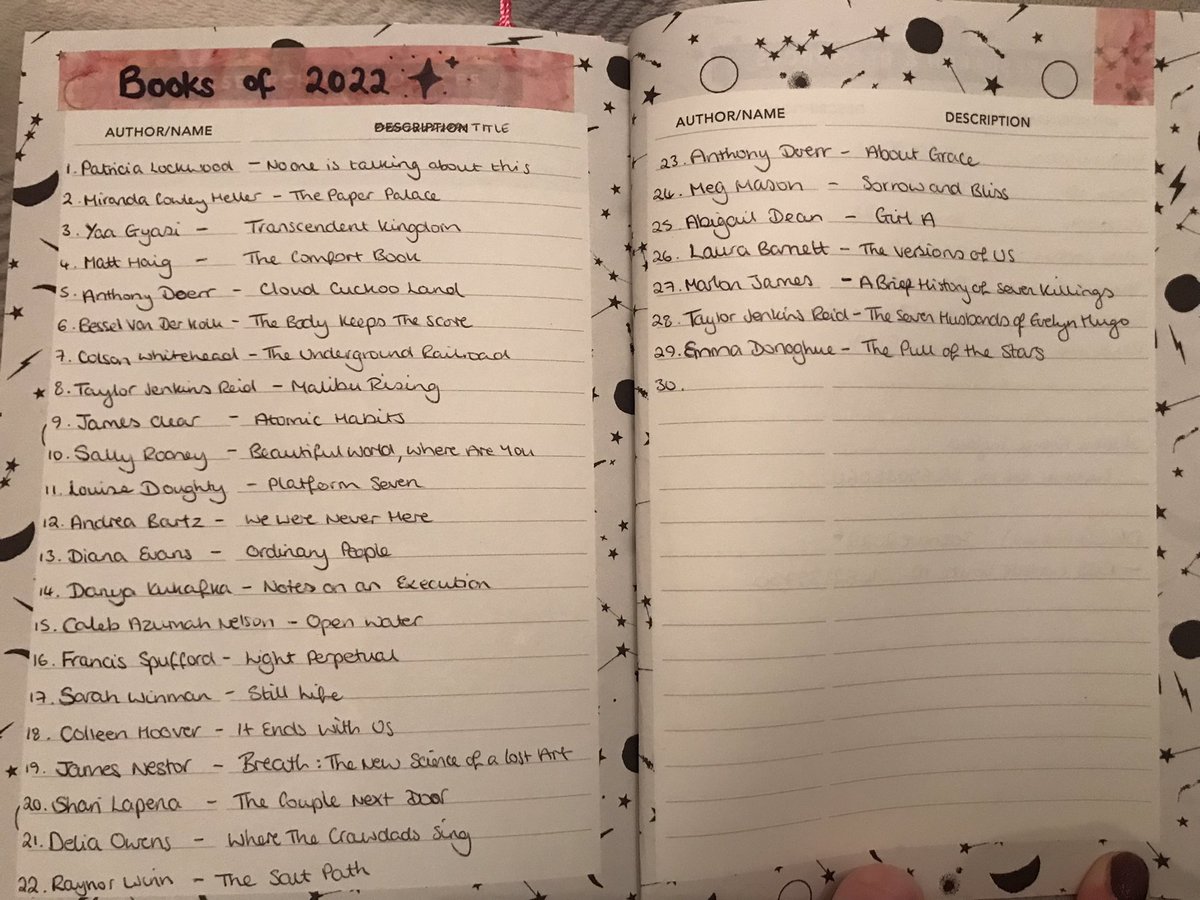 Books of 2022
AUTHOR/NAME DESCRIPTION TITLE
1. Patricia Lockwood - No one is talking about this
2. Miranda Cowley Heller - The Paper Palace
3. Yaa Gyasi - Transcendent Kingdom
4. Matt Haig - The Comfort Book
5. Anthony Doerr - Cloud Cuckoo Land
6. Bessel Van Der Kolk - The Body Keeps The Score
7. Colson Whitehead - The Underground Railroad
8. Taylor Jenkins Reid - Malibu Rising
9. James Clear - Atomic Habits
10. Sally Rooney - Beautiful World, Where Are You
11. Louise Doughty - Platform Seven
12. Andrea Bartz - We Were Never Here
13. Diana Evans - Ordinary People
14. Danya Kukafka - Notes on an Execution
15. Caleb Azumah Nelson - Open Water
16. Francis Spufford - Light Perpetual
17. Sarah Winman - Still Life
18. Colleen Hoover - It Ends With Us
19. James Nestor - Breath: The New Science of a Lost Art
20. Shari Lapena - The Couple Next Door
21. Delia Owens - Where The Crawdads Sing
22. Raynor Winn - The Salt Path
AUTHOR/NAME DESCRIPTION
23. Anthony Doerr - About Grace
24. Meg Mason - Sorrow and Bliss
25. Abigail Dean - Girl A
26. Laura Barnett - The Versions of Us
27. Marlon James - A Brief History of Seven Killings
28. Taylor Jenkins Reid - The Seven Husbands of Evelyn Hugo
29. Emma Donoghue - The Pull of the Stars
30.